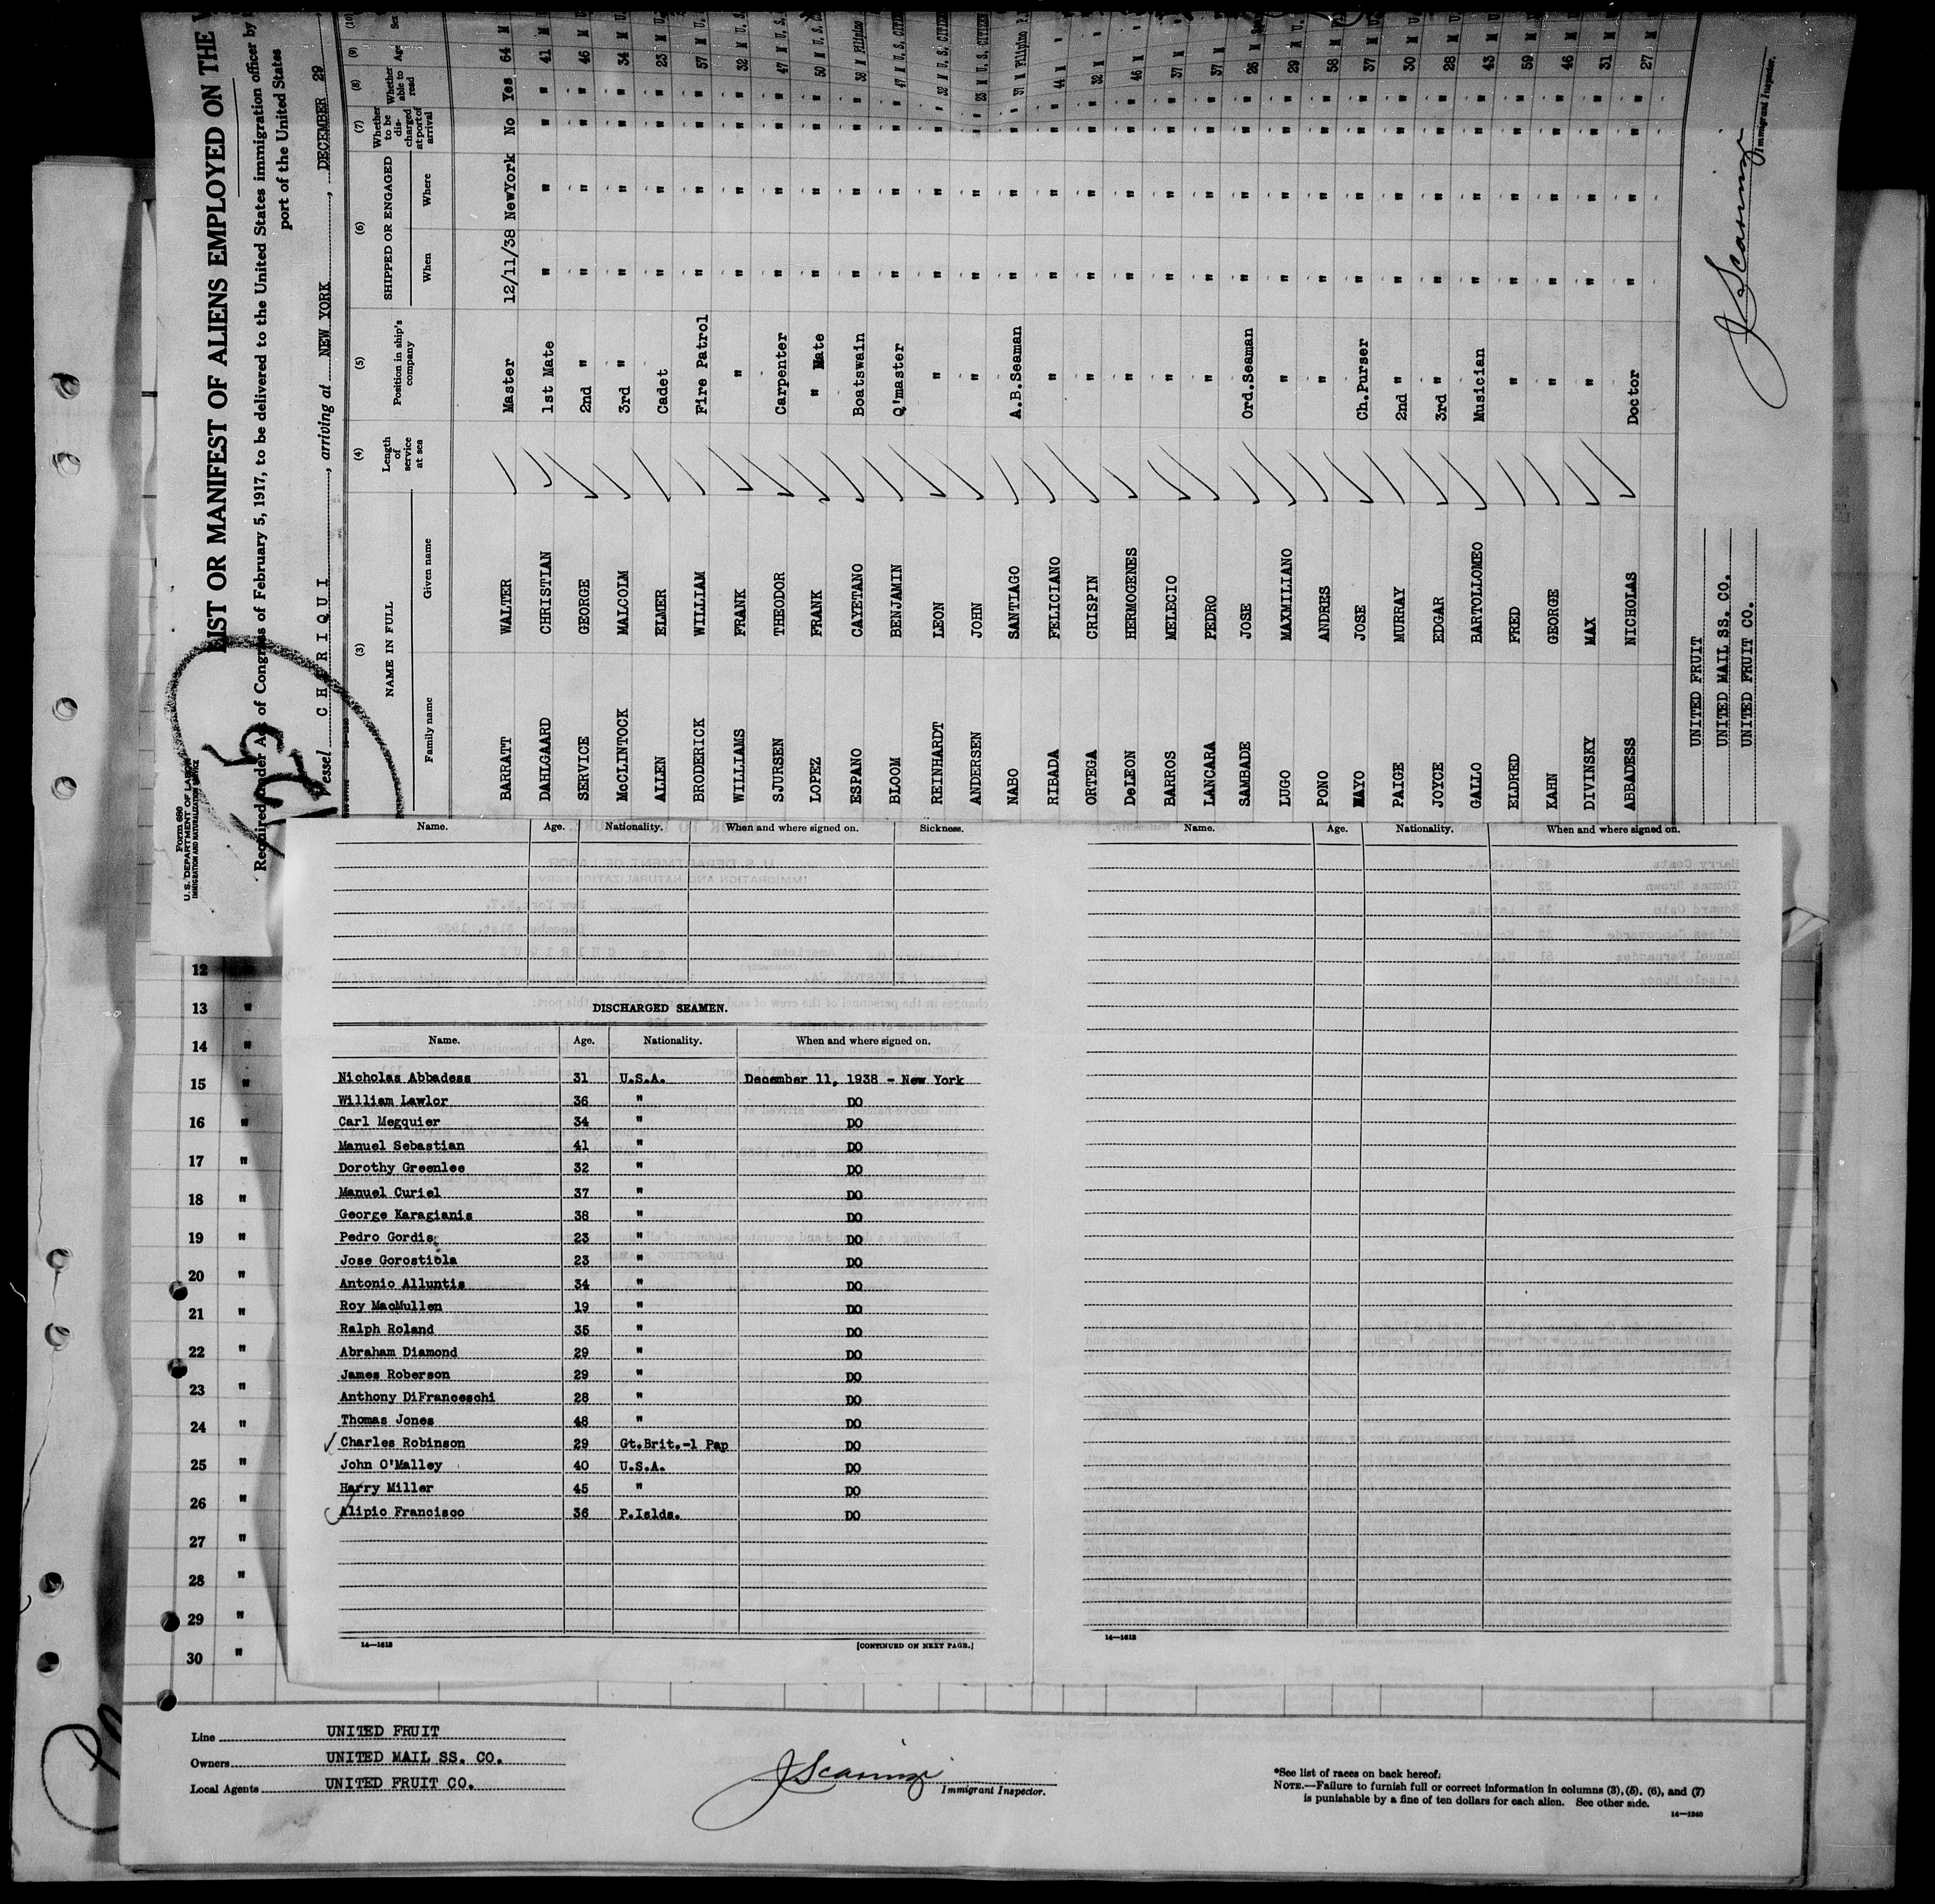 Form 680
U. S. DEPARTMENT OF LABOR
IMMIGRATION AND NATURALIZATION SERVICE
LIST OR MANIFEST OF ALIENS EMPLOYED ON THE
Required under Act of Congress of February 5, 1917, to be delivered to the United States immigration officer by
port of the United States
125
Vessel CHIRIQUI, arriving at NEW YORK, DECEMBER 29
(3) (4) (5) (6) (7) (8) (9) (10)
NAME IN FULL Length of service at sea Position in ship's company SHIPPED OR ENGAGED Whether to be discharged at port of arrival Whether able to read Age Sex
Family name Given name When Where
BARRATT WALTER Master 12/11/38 NewYork No Yes 64 M U.
DAHLGAARD CHRISTIAN 1st Mate " " " " 41 M
SERVICE GEORGE 2nd " " " " " 46 M U.
McCLINTOCK MALCOLM 3rd " " " " " 34 M U.
ALLEN ELMER Cadet " " " " 23 M U.
BRODERICK WILLIAM Fire Patrol " " " " 57 M U.
WILLIAMS FRANK " " " " " 32 M U. S.
SJURSEN THEODOR Carpenter " " " " 47 M U. S.
LOPEZ FRANK " Mate " " " " 50 M U. S.
ESPANO CAYETANO Boatswain " " " " 38 M Filipino
BLOOM BENJAMIN Q'master " " " " 47 M U. S. CITIZEN
REINHARDT LEON " " " " " 32 M U. S. CITIZEN
ANDERSEN JOHN " " " " " 25 M U. S. CITIZEN
NABO SANTIAGO A.B.Seaman " " " " 37 M Filipino P.
RIBADA FELICIANO " " " " " 44 M
ORTEGA CRISPIN " " " " " 32 M
DeLEON HERMOGENES " " " " " 46 M
BARROS MELECIO " " " " " 37 M
LANCARA PEDRO " " " " " 37 M
SAMBADE JOSE Ord.Seaman " " " " 26 M
LUGO MAXMILIANO " " " " " 29 M U.
PONO ANDRES " " " " " 58 M
MAYO JOSE Ch.Purser " " " " 37 M
PAIGE MURRAY 2nd " " " " " 30 M U
JOYCE EDGAR 3rd " " " " " 28 M U
GALLO BARTOLLOMEO Musician " " " " 43 M U
ELDRED FRED " " " " " 59 M
KAHN GEORGE " " " " " 46 M
DIVINSKY MAX " " " " " 31 M
ABBADESS NICHOLAS Doctor " " " " 27 M
UNITED FRUIT
UNITED MAIL SS. CO.
UNITED FRUIT CO.
Immigrant Inspector.
Name. Age. Nationality. When and where signed on. Sickness.
Name. Age. Nationality. When and where signed on.
DISCHARGED SEAMEN.
Name. Age. Nationality. When and where signed on.
Nicholas Abbadess 31 U.S.A. December 11, 1938 - New York
William Lawlor 36 " DO
Carl Megquier 34 " DO
Manuel Sebastian 41 " DO
Dorothy Greenlee 32 " DO
Manuel Curiel 37 " DO
George Karagianis 38 " DO
Pedro Gordis 23 " DO
Jose Gorostiola 23 " DO
Antonio Alluntis 34 " DO
Roy MacMullen 19 " DO
Ralph Roland 35 " DO
Abraham Diamond 29 " DO
James Roberson 29 " DO
Anthony DiFranceschi 28 " DO
Thomas Jones 48 " DO
Charles Robinson 29 Gt.Brit.-1 Pap DO
John O'Malley 40 U.S.A. DO
Harry Miller 45 " DO
Alipio Francisco 36 P.Islds. DO
14—1613 [CONTINUED ON NEXT PAGE.]
14—1613
12
13 "
14 "
15 "
16 "
17 "
18 "
19 "
20 "
21 "
22 "
23 "
24 "
25 "
26 "
27 "
28 "
29 "
30 "
Line UNITED FRUIT
Owners UNITED MAIL SS. CO.
Local Agents UNITED FRUIT CO.
Immigrant Inspector.
*See list of races on back hereof.
NOTE.—Failure to furnish full or correct information in columns (3), (5), (6), and (7)
is punishable by a fine of ten dollars for each alien. See other side.
14—1240